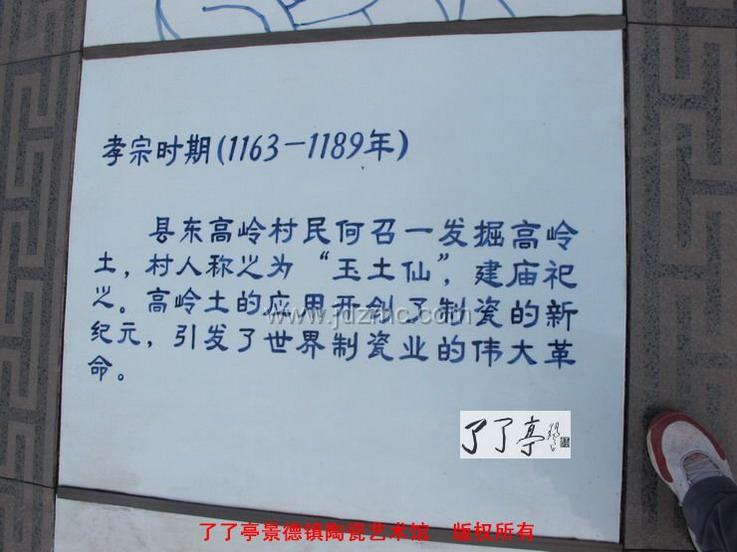 孝宗时期(1163－1189年)
县东高岭村民何召一发掘高岭
土，村人称之为“玉土仙”，建庙祀
之。高岭土的应用开创了制瓷的新
纪元，引发了世界制瓷业的伟大革
命。
www.jdzmc.com
了了亭
了了亭景德镇陶瓷艺术馆 版权所有